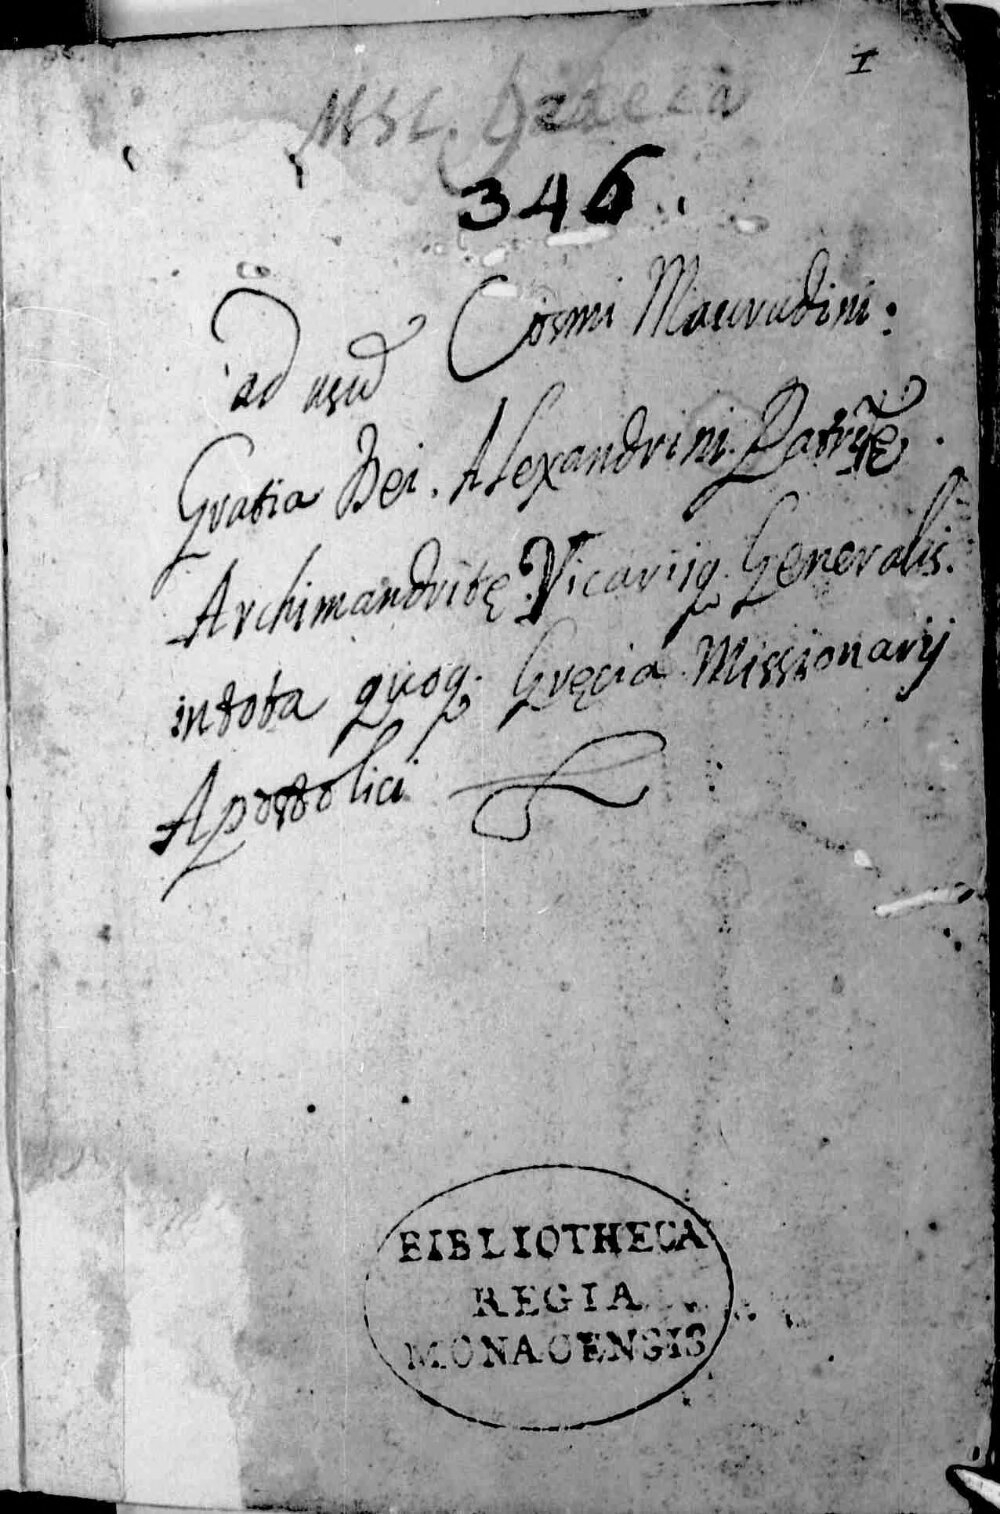 I
MSC. Graeca
346.
ad usũ Cosmi Mauvudini:
Gratia Dei. Alexandrini. Patri͠e.
Archimandritę. Vicarijq. Generalis.
in tota quoq. Gręcia Missionarij
Apostolici
BIBLIOTHECA
REGIA
MONACENSIS